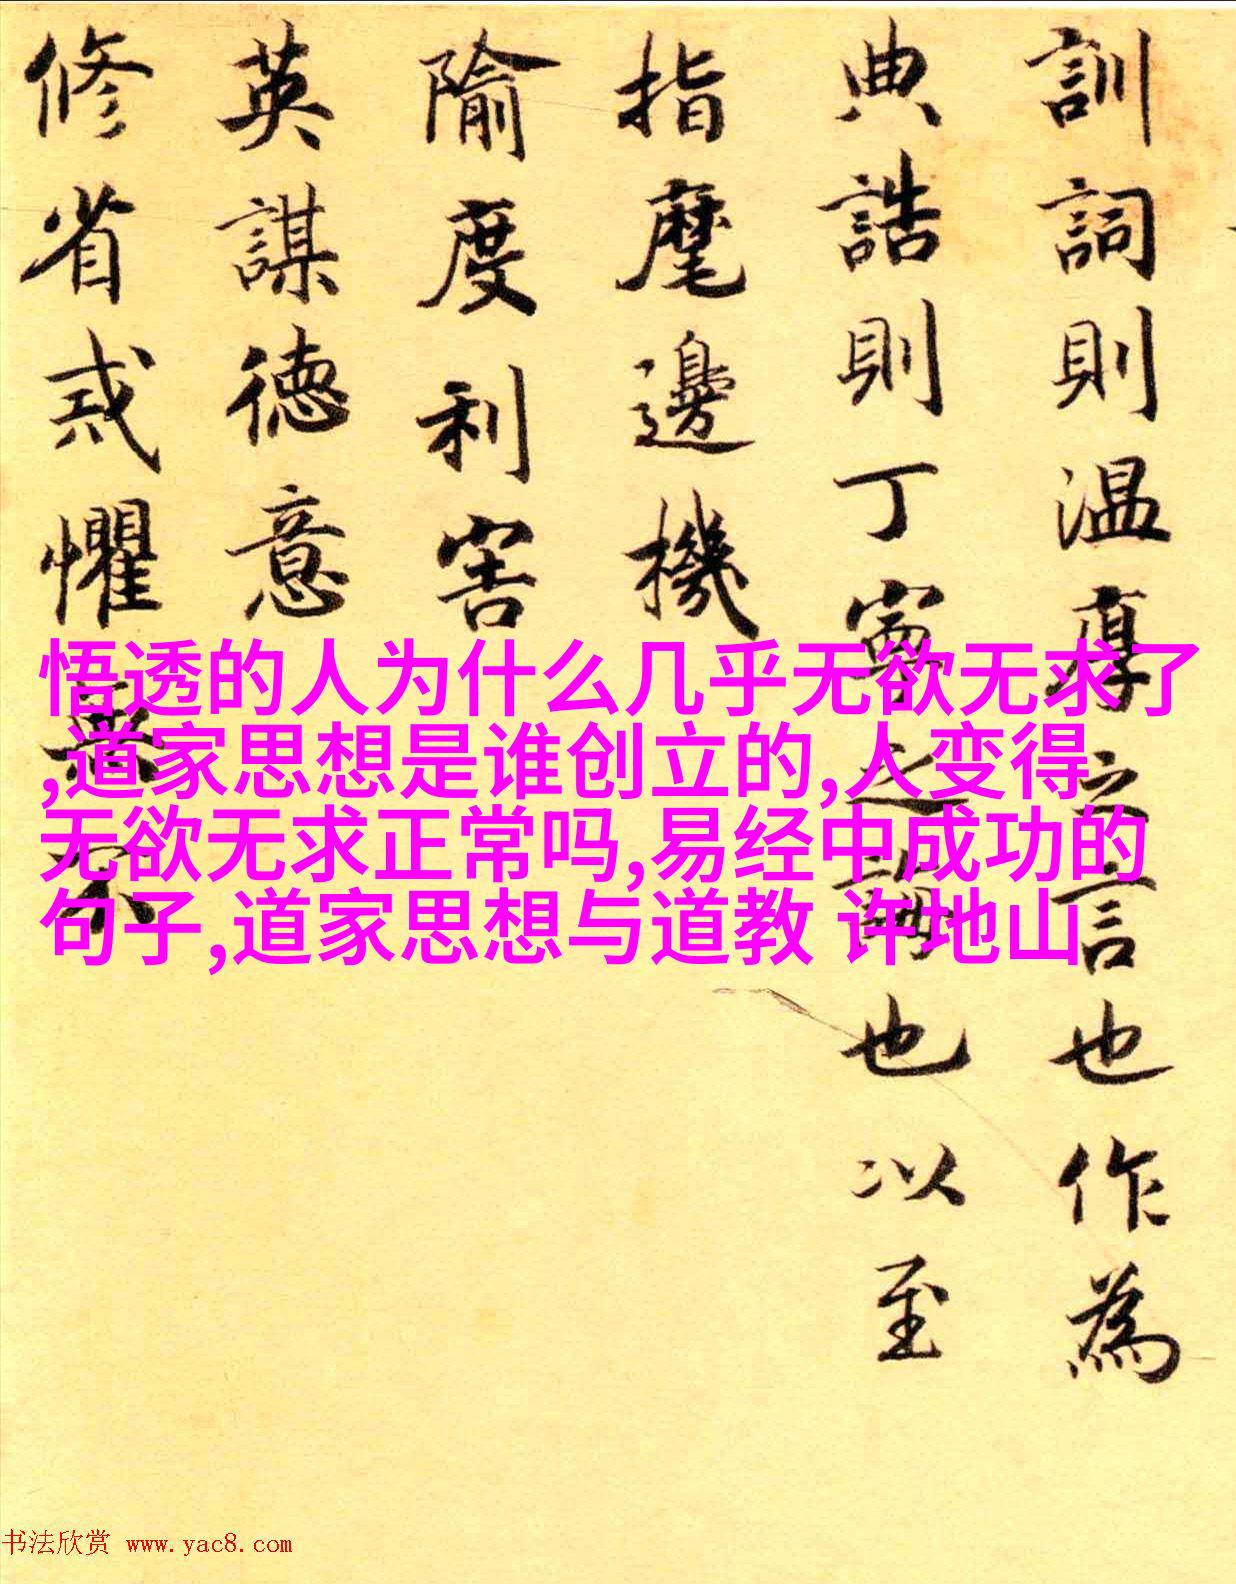 訓詞則温厚之言也作為
典誥則丁寧之誨也以至
指麾邊機
隃度利害
英謀徳意
修省戒懼無不
悟透的人为什么几乎无欲无求了
,道家思想是谁创立的,人变得
无欲无求正常吗,易经中成功的
句子,道家思想与道教 许地山
书法欣赏 www.yac8.com